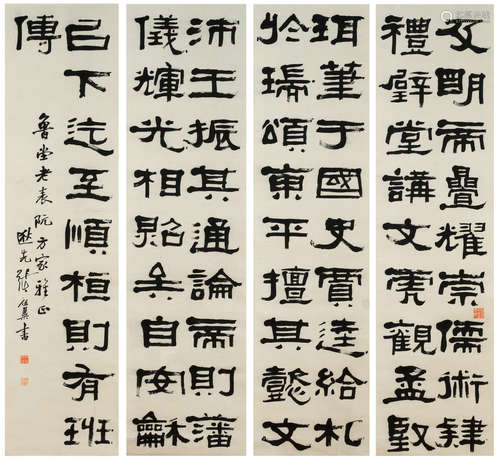 及明帝疊耀崇儒術肄
禮璧堂講文虎觀孟堅
珥筆于國史賈逵給札
於瑞頌東平擅其懿文
沛王振其通論帝則藩
儀輝光相照矣自安龢
已下迄至順桓則有班
傅
魯堂老表阮方家雅正
書